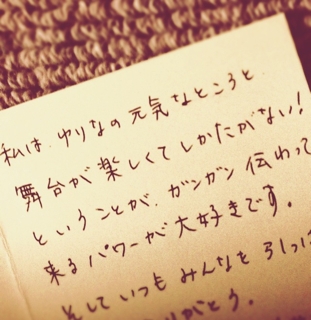 私は、ゆりなの元気なところと
舞台が楽しくてしかたがない!
ということが、ガンガン伝わって
来るパワーが大好きです。
そしていつもみんなを引っぱ
りがとう。